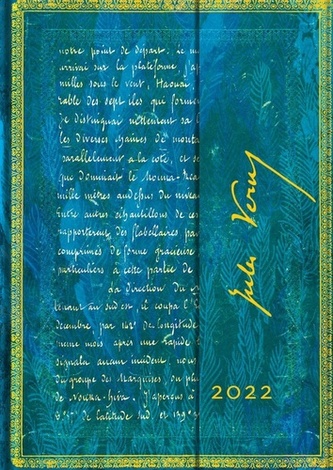 notre point de départ: je me
arrivai sur la plateforme, j'ap
milles sous le vent, Haouaï,
rable des sept îles qui forment
Je distinguai nettement sa li
les diverses chaînes de monta
parallèlement à la côte, et se
que dominait le Mouna-Rea
mille mètres audessus du niveau
entre autres échantillons de ces
rapportèrent des flabellaires pav
comprimés de forme gracieuse
particuliers à cette partie de
La direction du
au sud-est, il coupa l'E
décembre, par 142° de longitude
même mois après une rapide
signala aucun incident, nous
du groupe des Marquises. au plu
de Nouka-hiva. J'aperçus à
8° de latitude sud, et 139° 3
Jules Verne
2022